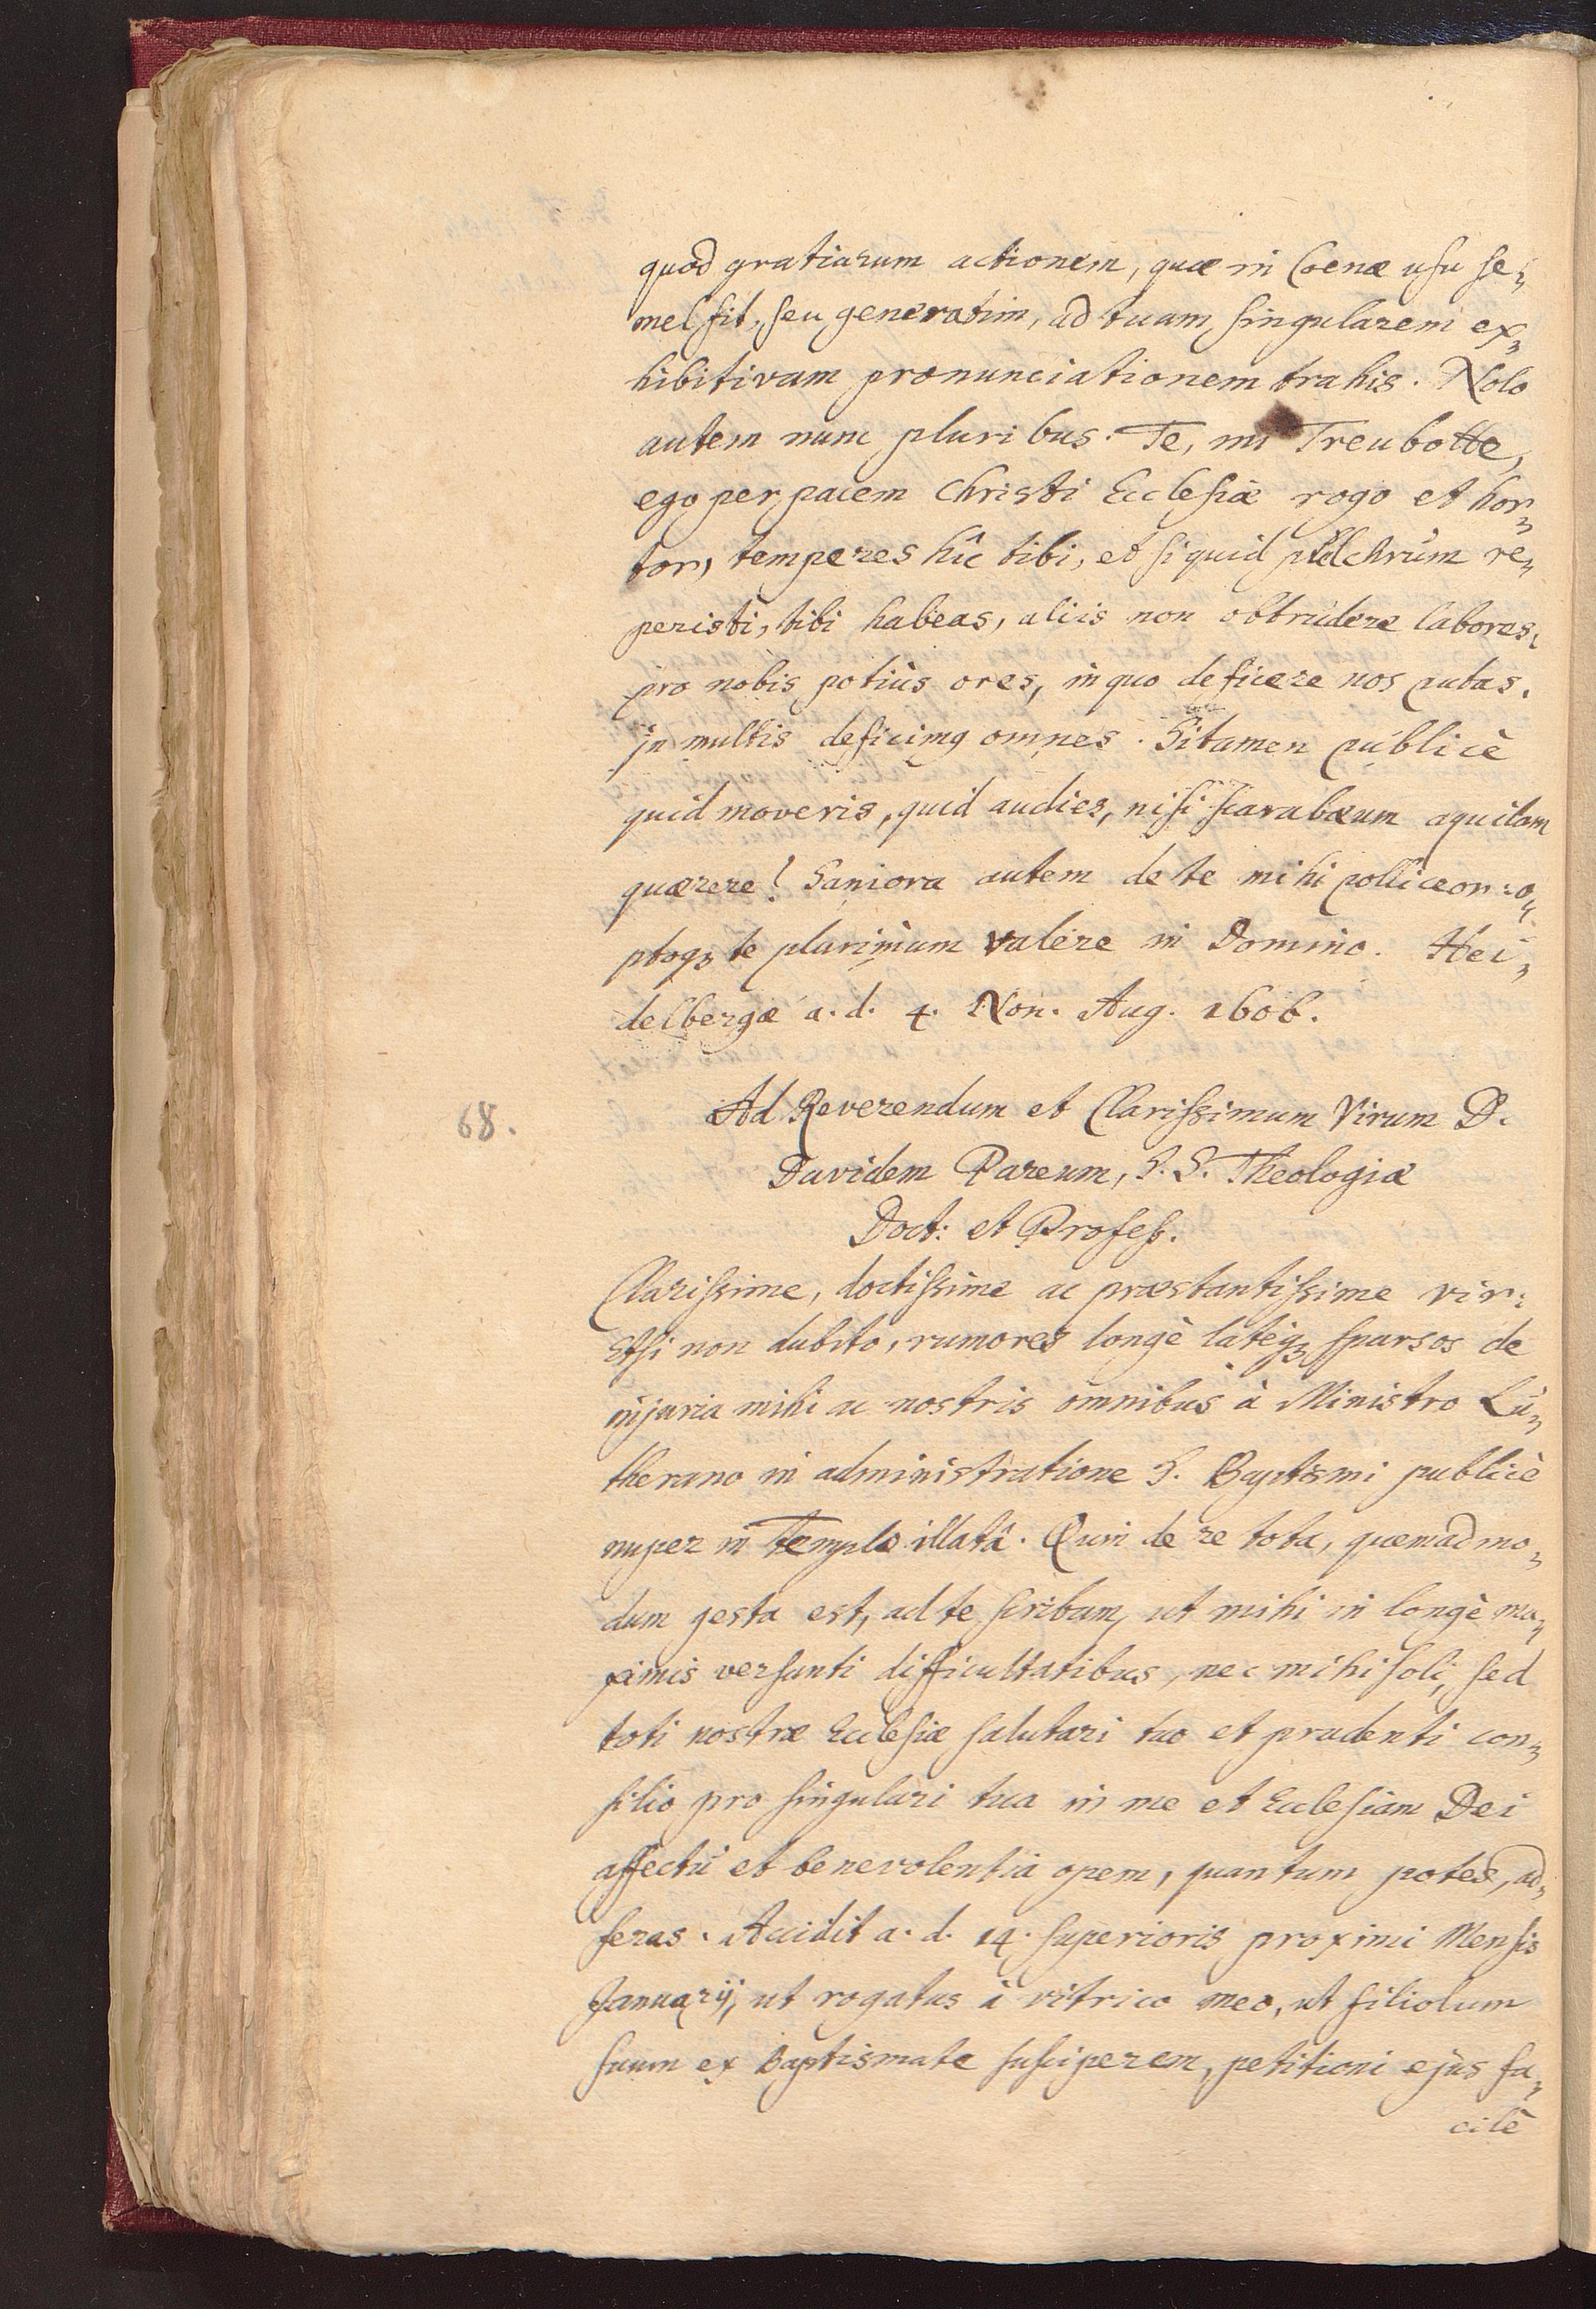 quod gratiarum actionem, quæ in Coenæ usu se-
mel fit, seu generatim, ad tuam singularem ex-
hibitivam pronunciationem trahis. Nolo
autem nunc pluribus. Te, mi Treubotte,
ego per pacem Christi Ecclesiæ rogo et hor-
tor, temperes hîc tibi, et si quid pulchrum re-
peristi, tibi habeas, aliis non obtrudere labores,
pro nobis potiùs ores, in quo deficere nos putas.
in multis deficimꝰ omnes. Si tamen publicè
quid moveris, quid audies, nisi scarabæum aquilam
quærere? Saniora autem de te mihi polliceor: o-
ptoqꝫ te plurimùm valere in Domino. Hei-
delbergæ a. d. 4. Non. Aug. 1606.
68. Ad Reverendum et Clarissimum Virum D.
Davidem Pareum, S. S. Theologiæ
Doct: et Profess.
Clarissime, doctissime ac præstantissime vir:
Etsi non dubito, rumores longè latèqꝫ sparsos de
injuria mihi ac nostris omnibus à Ministro Lu-
therano in administratione S. Baptismi publicè
nuper in Templo illatâ. Quin de re tota, quemadmo-
dum gesta est, ad te scribam, ut mihi in longè ma-
ximis versanti difficultatibus, nec mihi soli, sed
toti nostræ Ecclesiæ salutari tuo et prudenti con-
silio pro singulari tua in me et Ecclesiam Dei
affectu et benevolentiâ opem, quantum potes, ad-
feras. Accidit a. d. 14. superioris proximi Mensis
Januarij, ut rogatus à vitrico meo, ut filiolum
suum ex Baptismate susciperem, petitioni ejus fa-
cilè